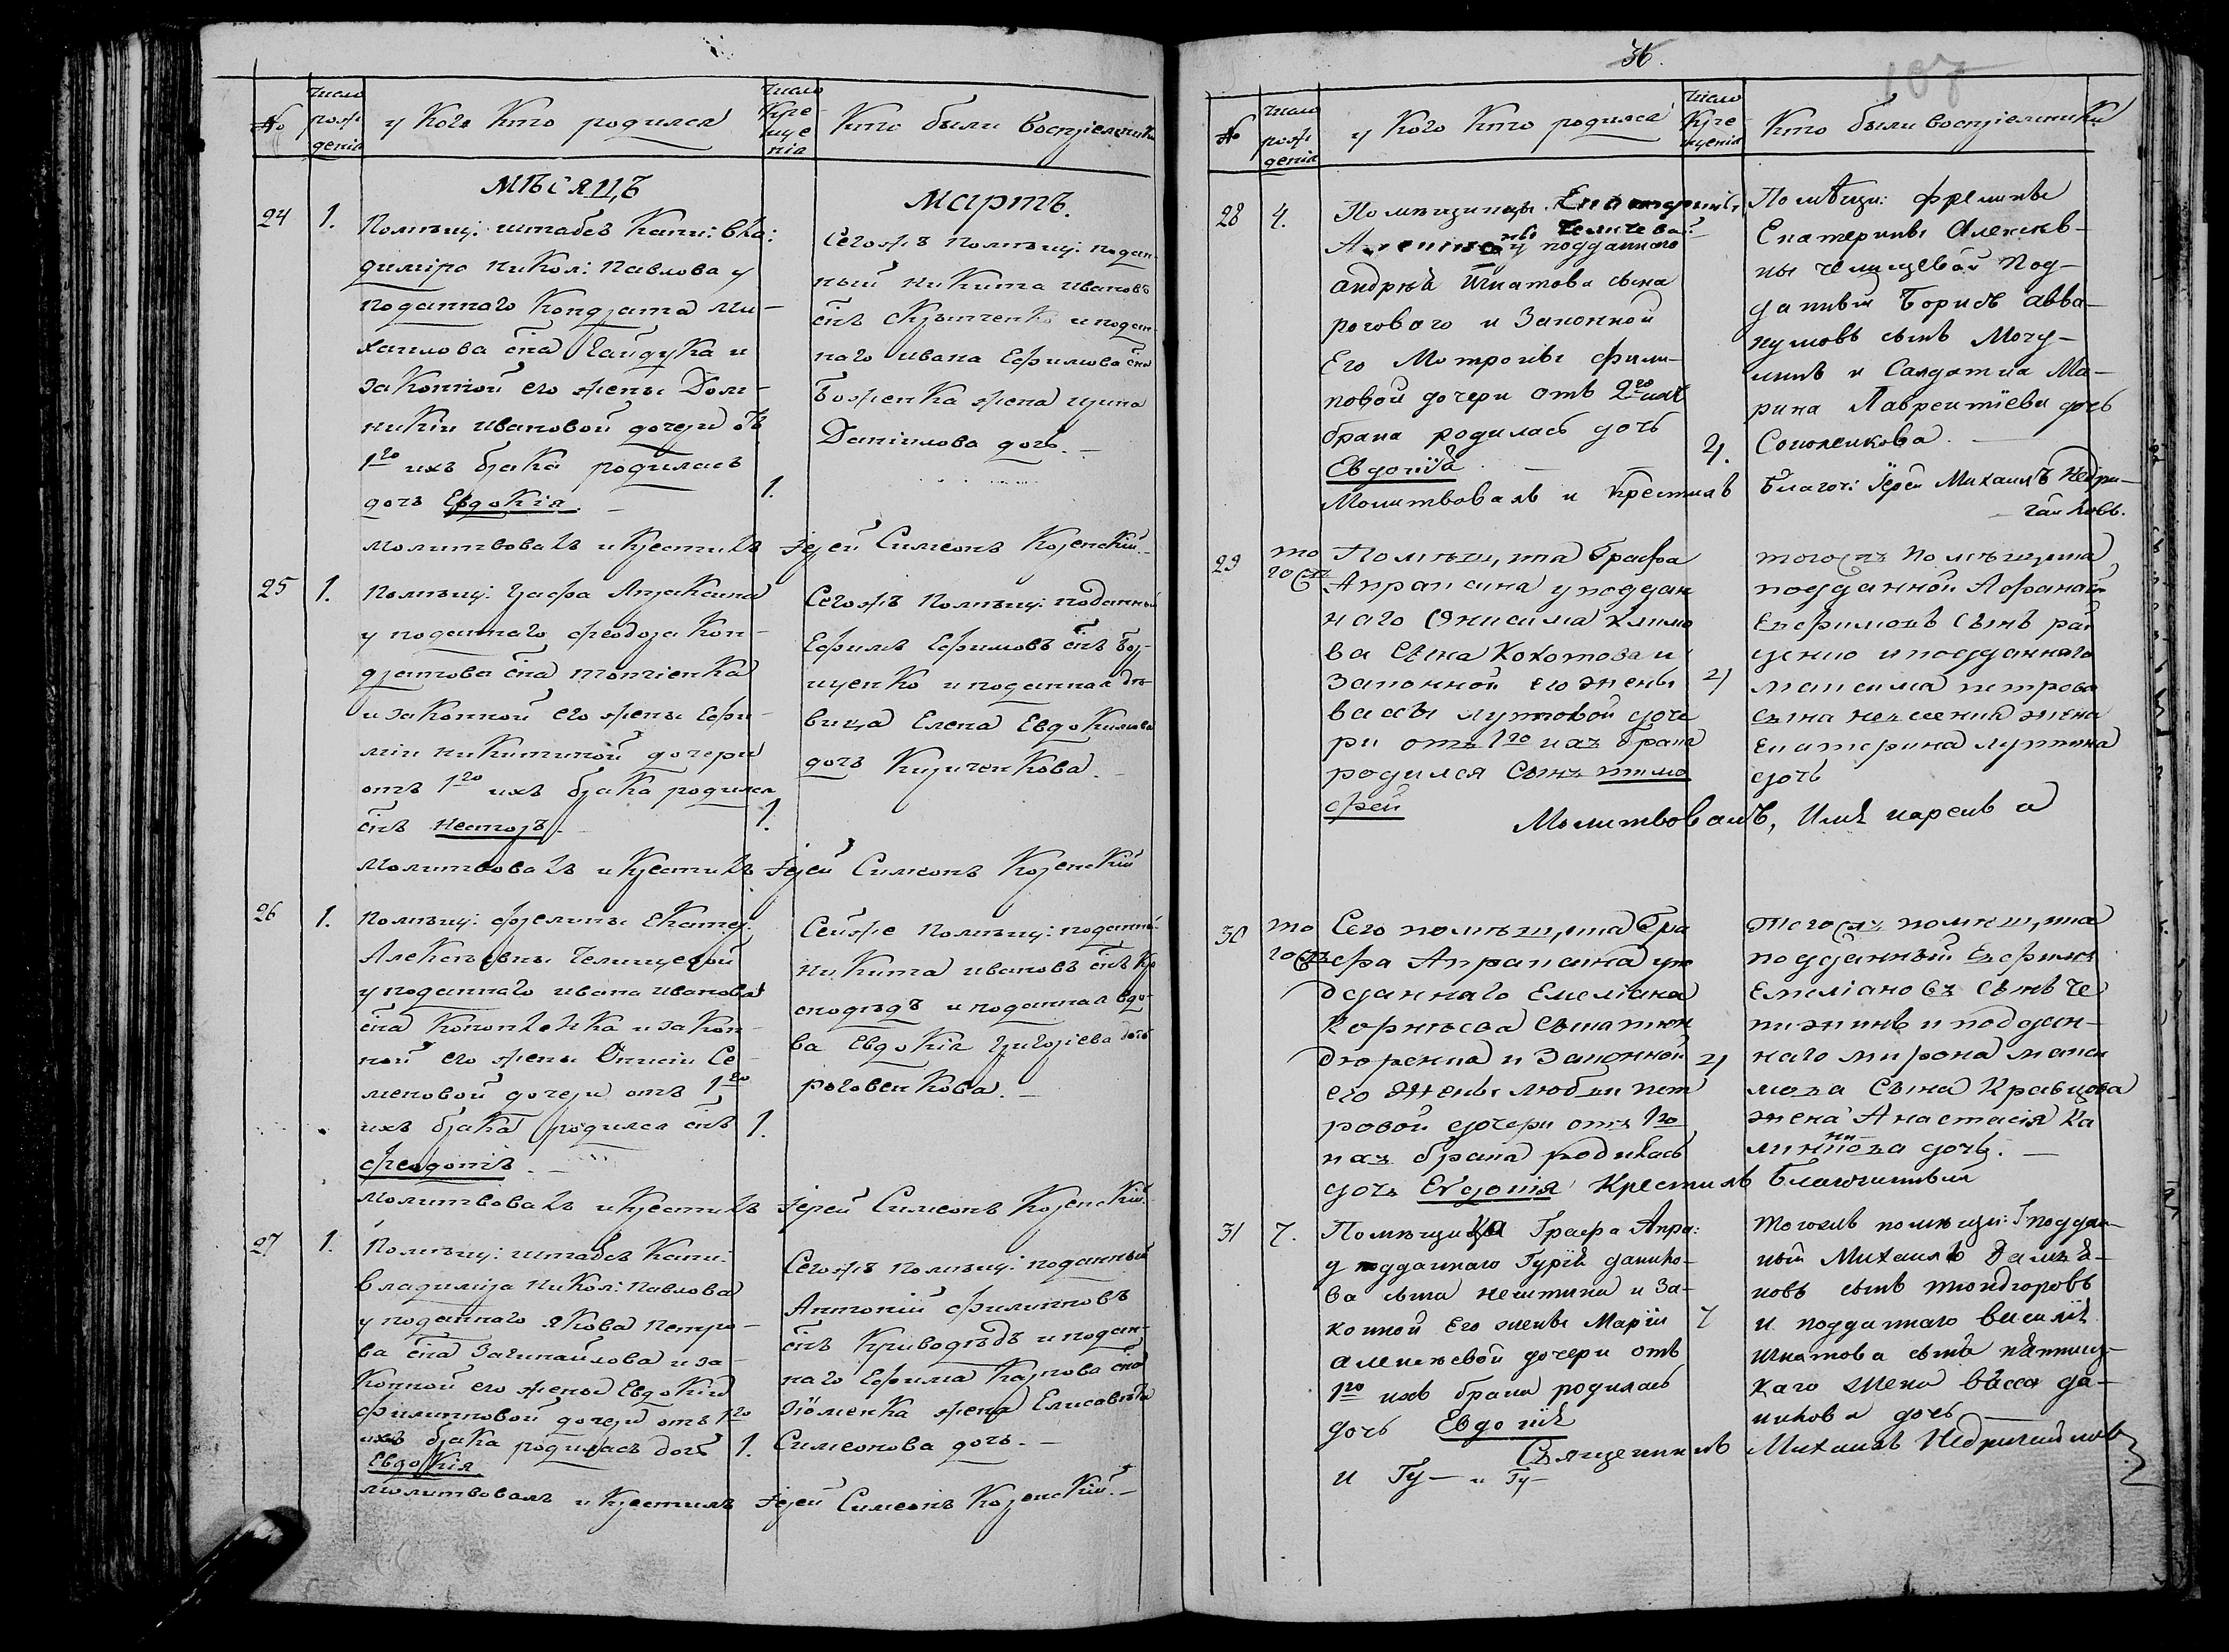 №
число рож денія
у Кого Кто родился
число Кре ще нія
Кто были воспріемники
мѣсяцъ
Мартъ.
24 1.
Помѣщ: штабсъ Капи: Вла:
диміра Никол: Павлова у
поданного Кондрата Ми-
хаилова сна Гайдука и
законной его жены Дом-
никіи ивановой дочери отъ
1го ихъ брака родилась
дочъ Евдокія.
1.
Сегожъ помѣщ: подан-
ный никита ивановъ
снъ и подан-
наго ивана Ефимова сна
Боженка жена ирина
Даніилова дочъ.
молитвовалъ и Крестилъ Іерей Симеонъ Козенскій.
25 1.
Помѣщ: Графа Апраксина
у поданнаго Феодора Кон-
дратова сна
и законной его жены Ефи-
міи никитиной дочери
отъ 1го ихъ брака родился
снъ Несторъ.
1.
Сегожъ Помѣщ: поданный
Ефимъ Ефимовъ снъ
и поданная дѣ-
вица Елена Евдокимова
дочъ Кириченкова.
молитвовалъ и Крестилъ Іерей Симеонъ Козенскій
26 1.
Помѣщ: фрелины Екатер:
Алексѣевны Челищевой
у поданнаго ивана иванова
сна и закон-
ной его жены Онисіи Се-
меновой дочери отъ 1го
ихъ брака родился снъ
Феодотъ.
1.
Сейже Помѣщ: поданный
никита ивановъ снъ
и поданная вдо-
ва Евдокія Григоріева дочъ
роговенкова.
молитвовалъ и Крестилъ Іерей Симеонъ Козенскій.
27 1.
Помѣщ: штабсъ Капи:
Владиміра Никол: Павлова
у поданнаго Якова Петро-
ва сна Загинайлова и за-
конной его жены Евдокіи
филипповой дочери отъ 1го
ихъ брака родилась дочъ
Евдокія
1.
Сегожъ помѣщ: поданный
Антоній филипповъ
снъ Криводѣдъ и подан-
наго Ефима Карпова сна
жена Елисавета
Симеонова дочъ.
молитвовалъ и Крестилъ Іерей Симеонъ Козенскій.
36.
107
№
число рож денія
у Кого Кто родился
число Кре щенія
Кто были воспріемники
28 4.
Помѣщицы Екатерины
Челищевой
у подданнаго
андрѣя Игнатова сына
рогового и Законной
Его Мотроны фили-
повой дочери отъ 2го ихъ
брака родилась дочъ
Евдокія
4.
Помѣщи: фрелины
Екатерины Алексѣв-
ны челищевой Под-
данный Борисъ авва-
кумовъ сынъ
и Салдатка Ма-
рина Лаврентіева дочь
Молитвовалъ и Крестилъ Благоч: Іерей Михаилъ Недри-
гайловъ.
29
то
гожъ
Помѣщика Графа
Апраксина у поддан
наго Онисима клімо
ва Сына Кохотова и
законной его жены
вассы луповой доче
ри отъ 1го ихъ брака
родился Сынъ тимо
фей
4
тогожъ помѣщика
подданной Афанасій
Ефимовъ Сынъ рай
ценко и подданнаго
максима петрова
сына жена
Екатерина
дочь
Молитвовалъ, Имѣ нарекъ и
30
то
гожъ
Сего помѣщика Гра
фа Апраксина у по
дданнаго Емеліана
Корнѣева Сына тюн
дюренка и Законной
его Жены любви пет
ровой дочери отъ 1го
ихъ брака родилась
дочъ Евдокія
4
Тогожъ помѣщика
подданный Ефимъ
Емеліановъ сынъ Че
пижинъ и поддан-
наго мирона макси
мова Сына Кравцова
жена Анастасія Ка
линикова дочь.
Крестилъ Благочинный
31 7.
Помѣщика Графа Апра:
у подданнаго Гурія данило-
ва сына и За-
конной Его жены Маріи
алексѣевой дочери отъ
1го ихъ брака родилась
дочь Евдокія
7
тогожъ помѣщи: поддан-
ный Михаилъ
новъ сынъ тюндюровъ
и подданнаго василія
Игнатова сына
каго жена васса да-
нилова дочь
Священникъ Михаилъ Недригайловъ
и Гу- и Гу-